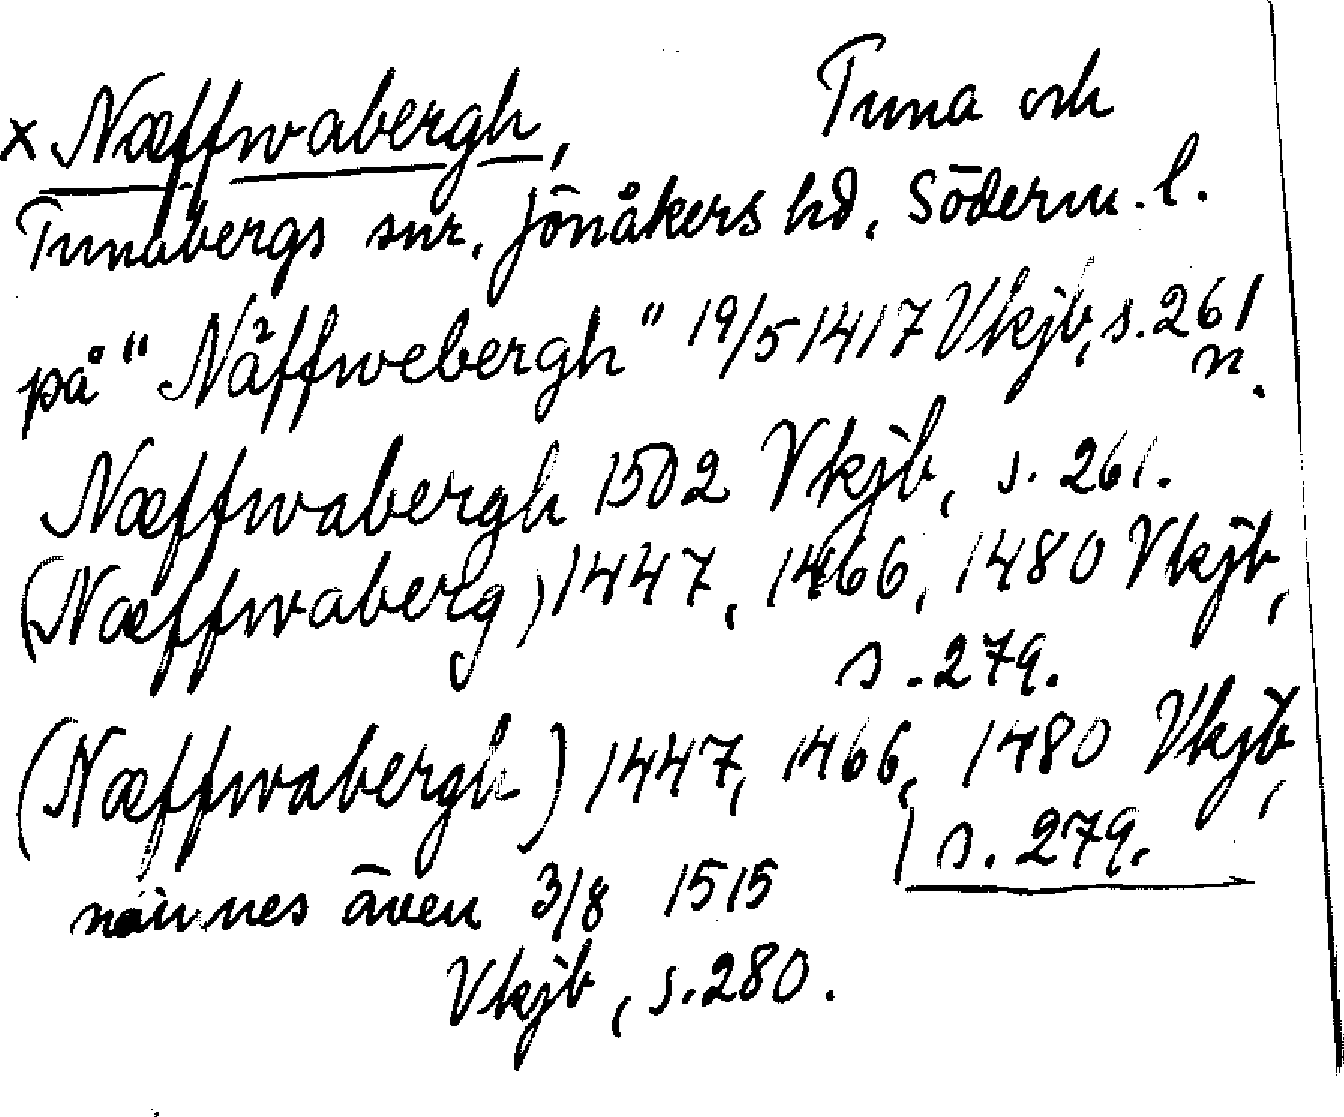 x Næffwabergh, Tuna och
Tunabergs snr. Jönåkers hd. Söderm. l.
på "Näffwebergh" 19/5 1417 Vkjb, s. 261
n.
Næffwabergh 1502 Vkjb, s. 261.
(Næffwaberg) 1447, 1466, 1480 Vkjb,
s. 279.
(Næffwabergh) 1447, 1466, 1480 Vkjb,
s. 279.
nämnes även 3/8 1515
Vkjb, s. 280.